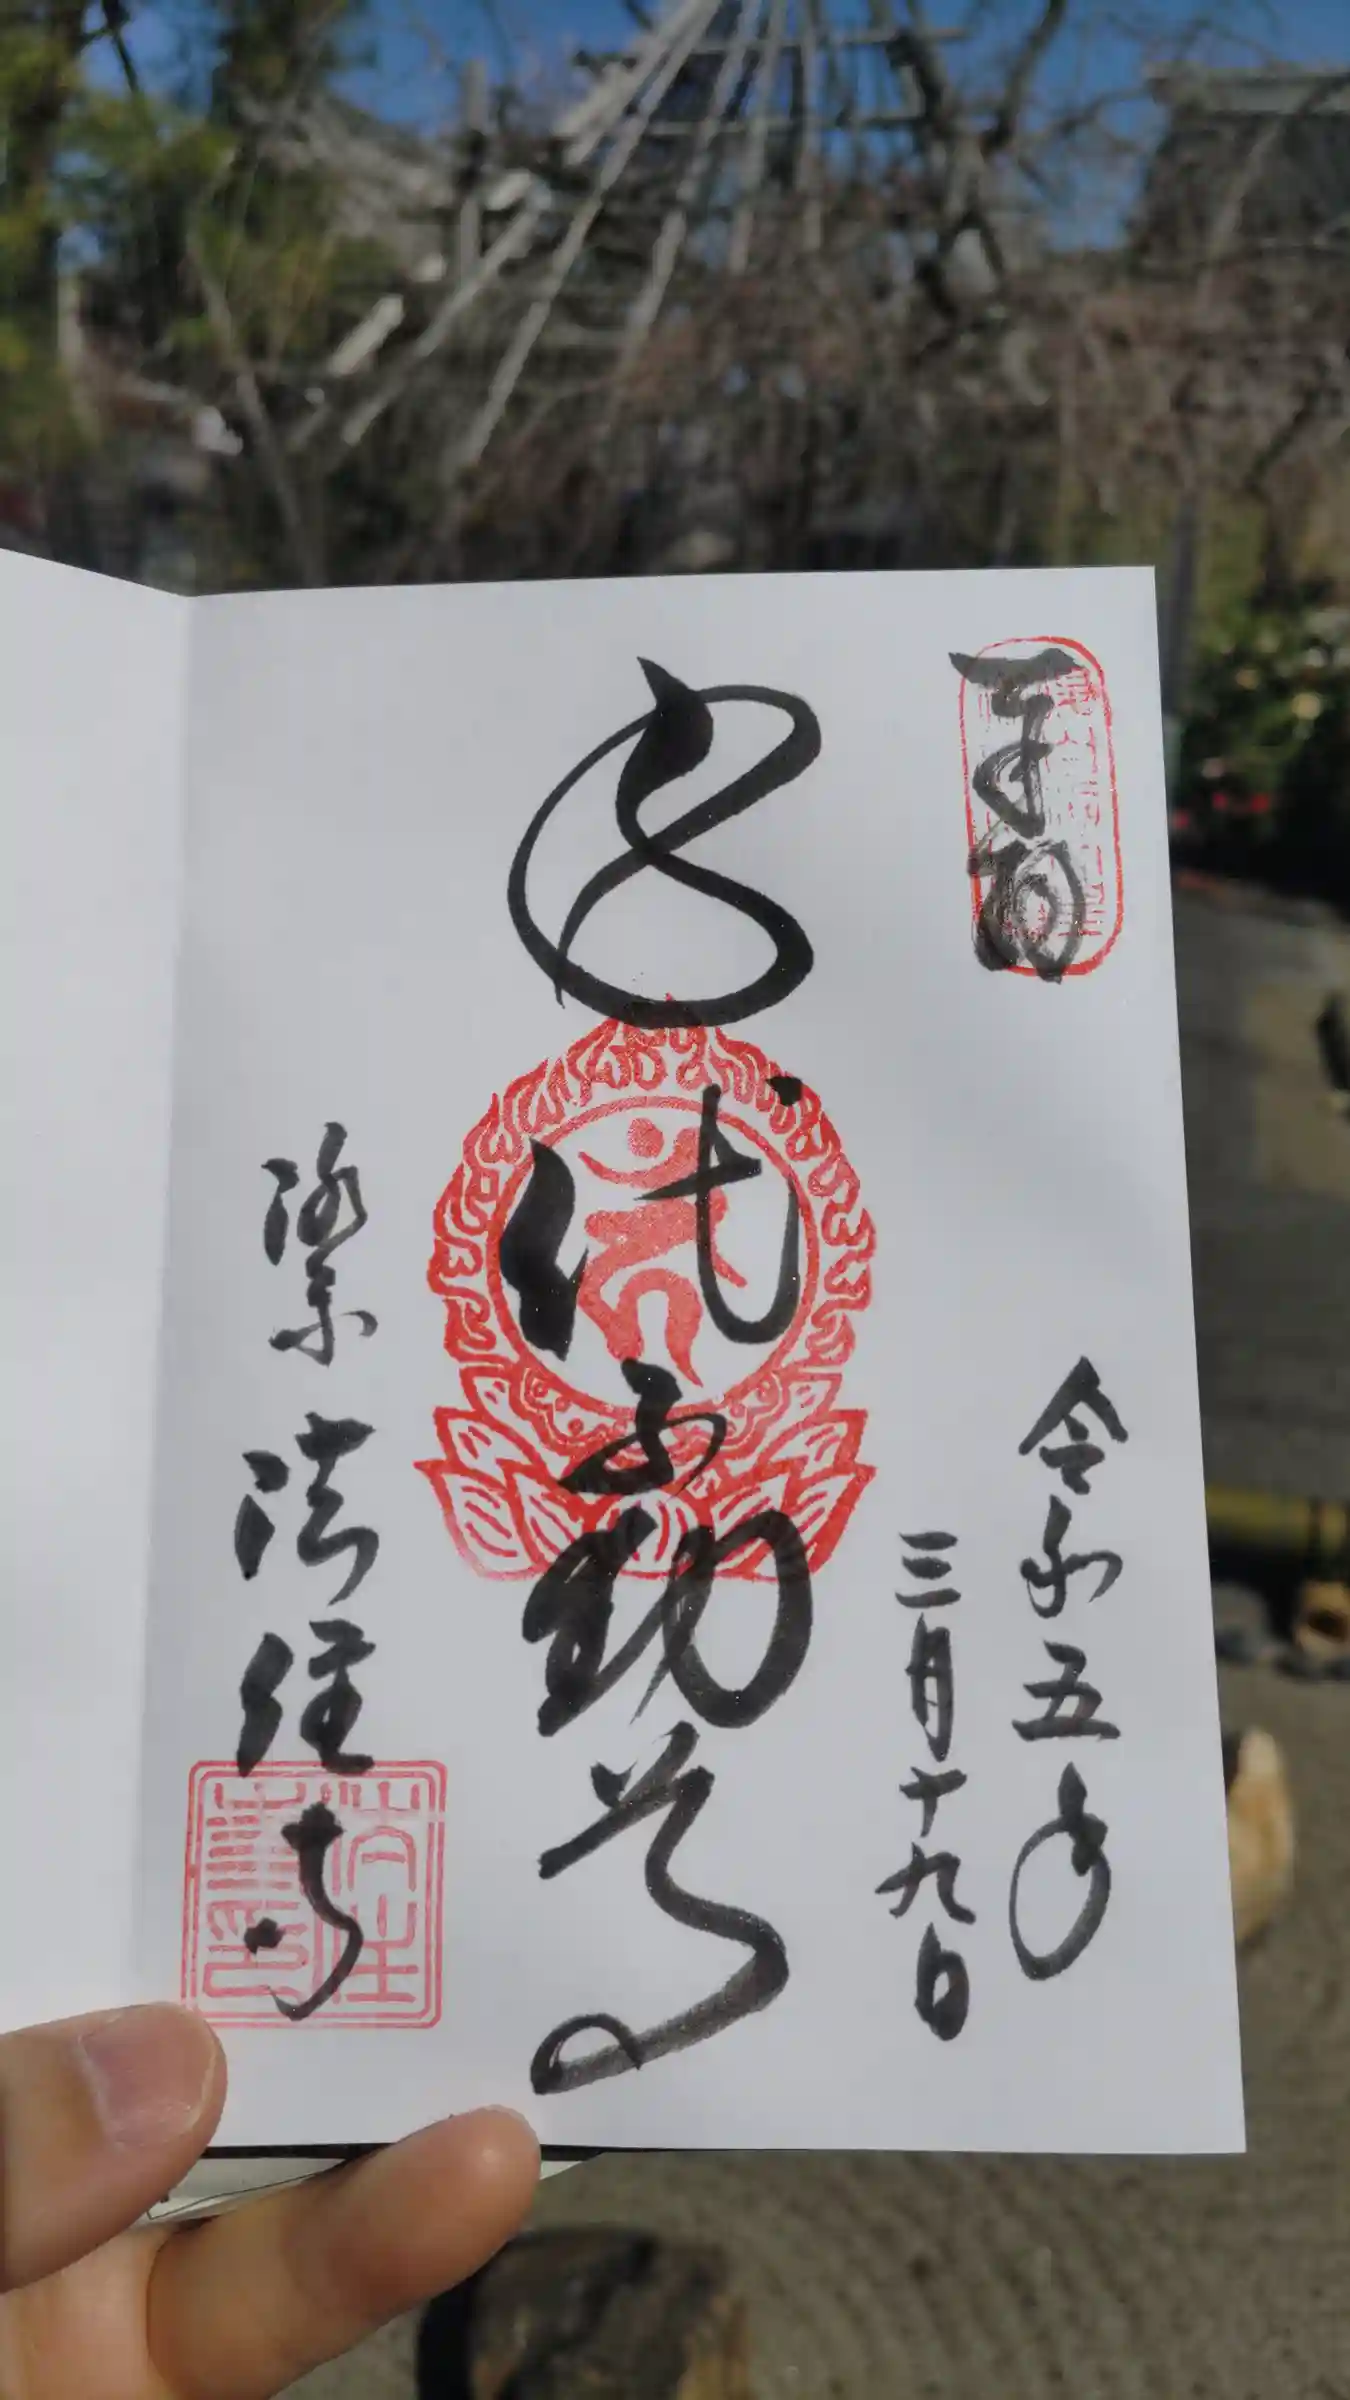 奉拝
令和五年
三月十九日
身代不動尊
洛東 法住寺